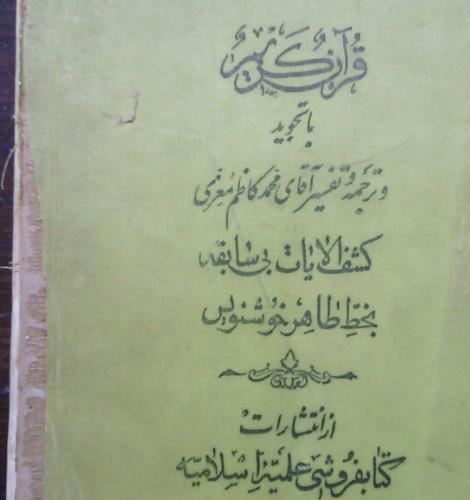 قرآن کریم
با تجوید
و ترجمه و تفسیر آقای محمد کاظم معزی
کشف الایات بی سابقه
بخط طاهر خوشنویس
از انتشارات
کتابفروشی علمیه اسلامیه